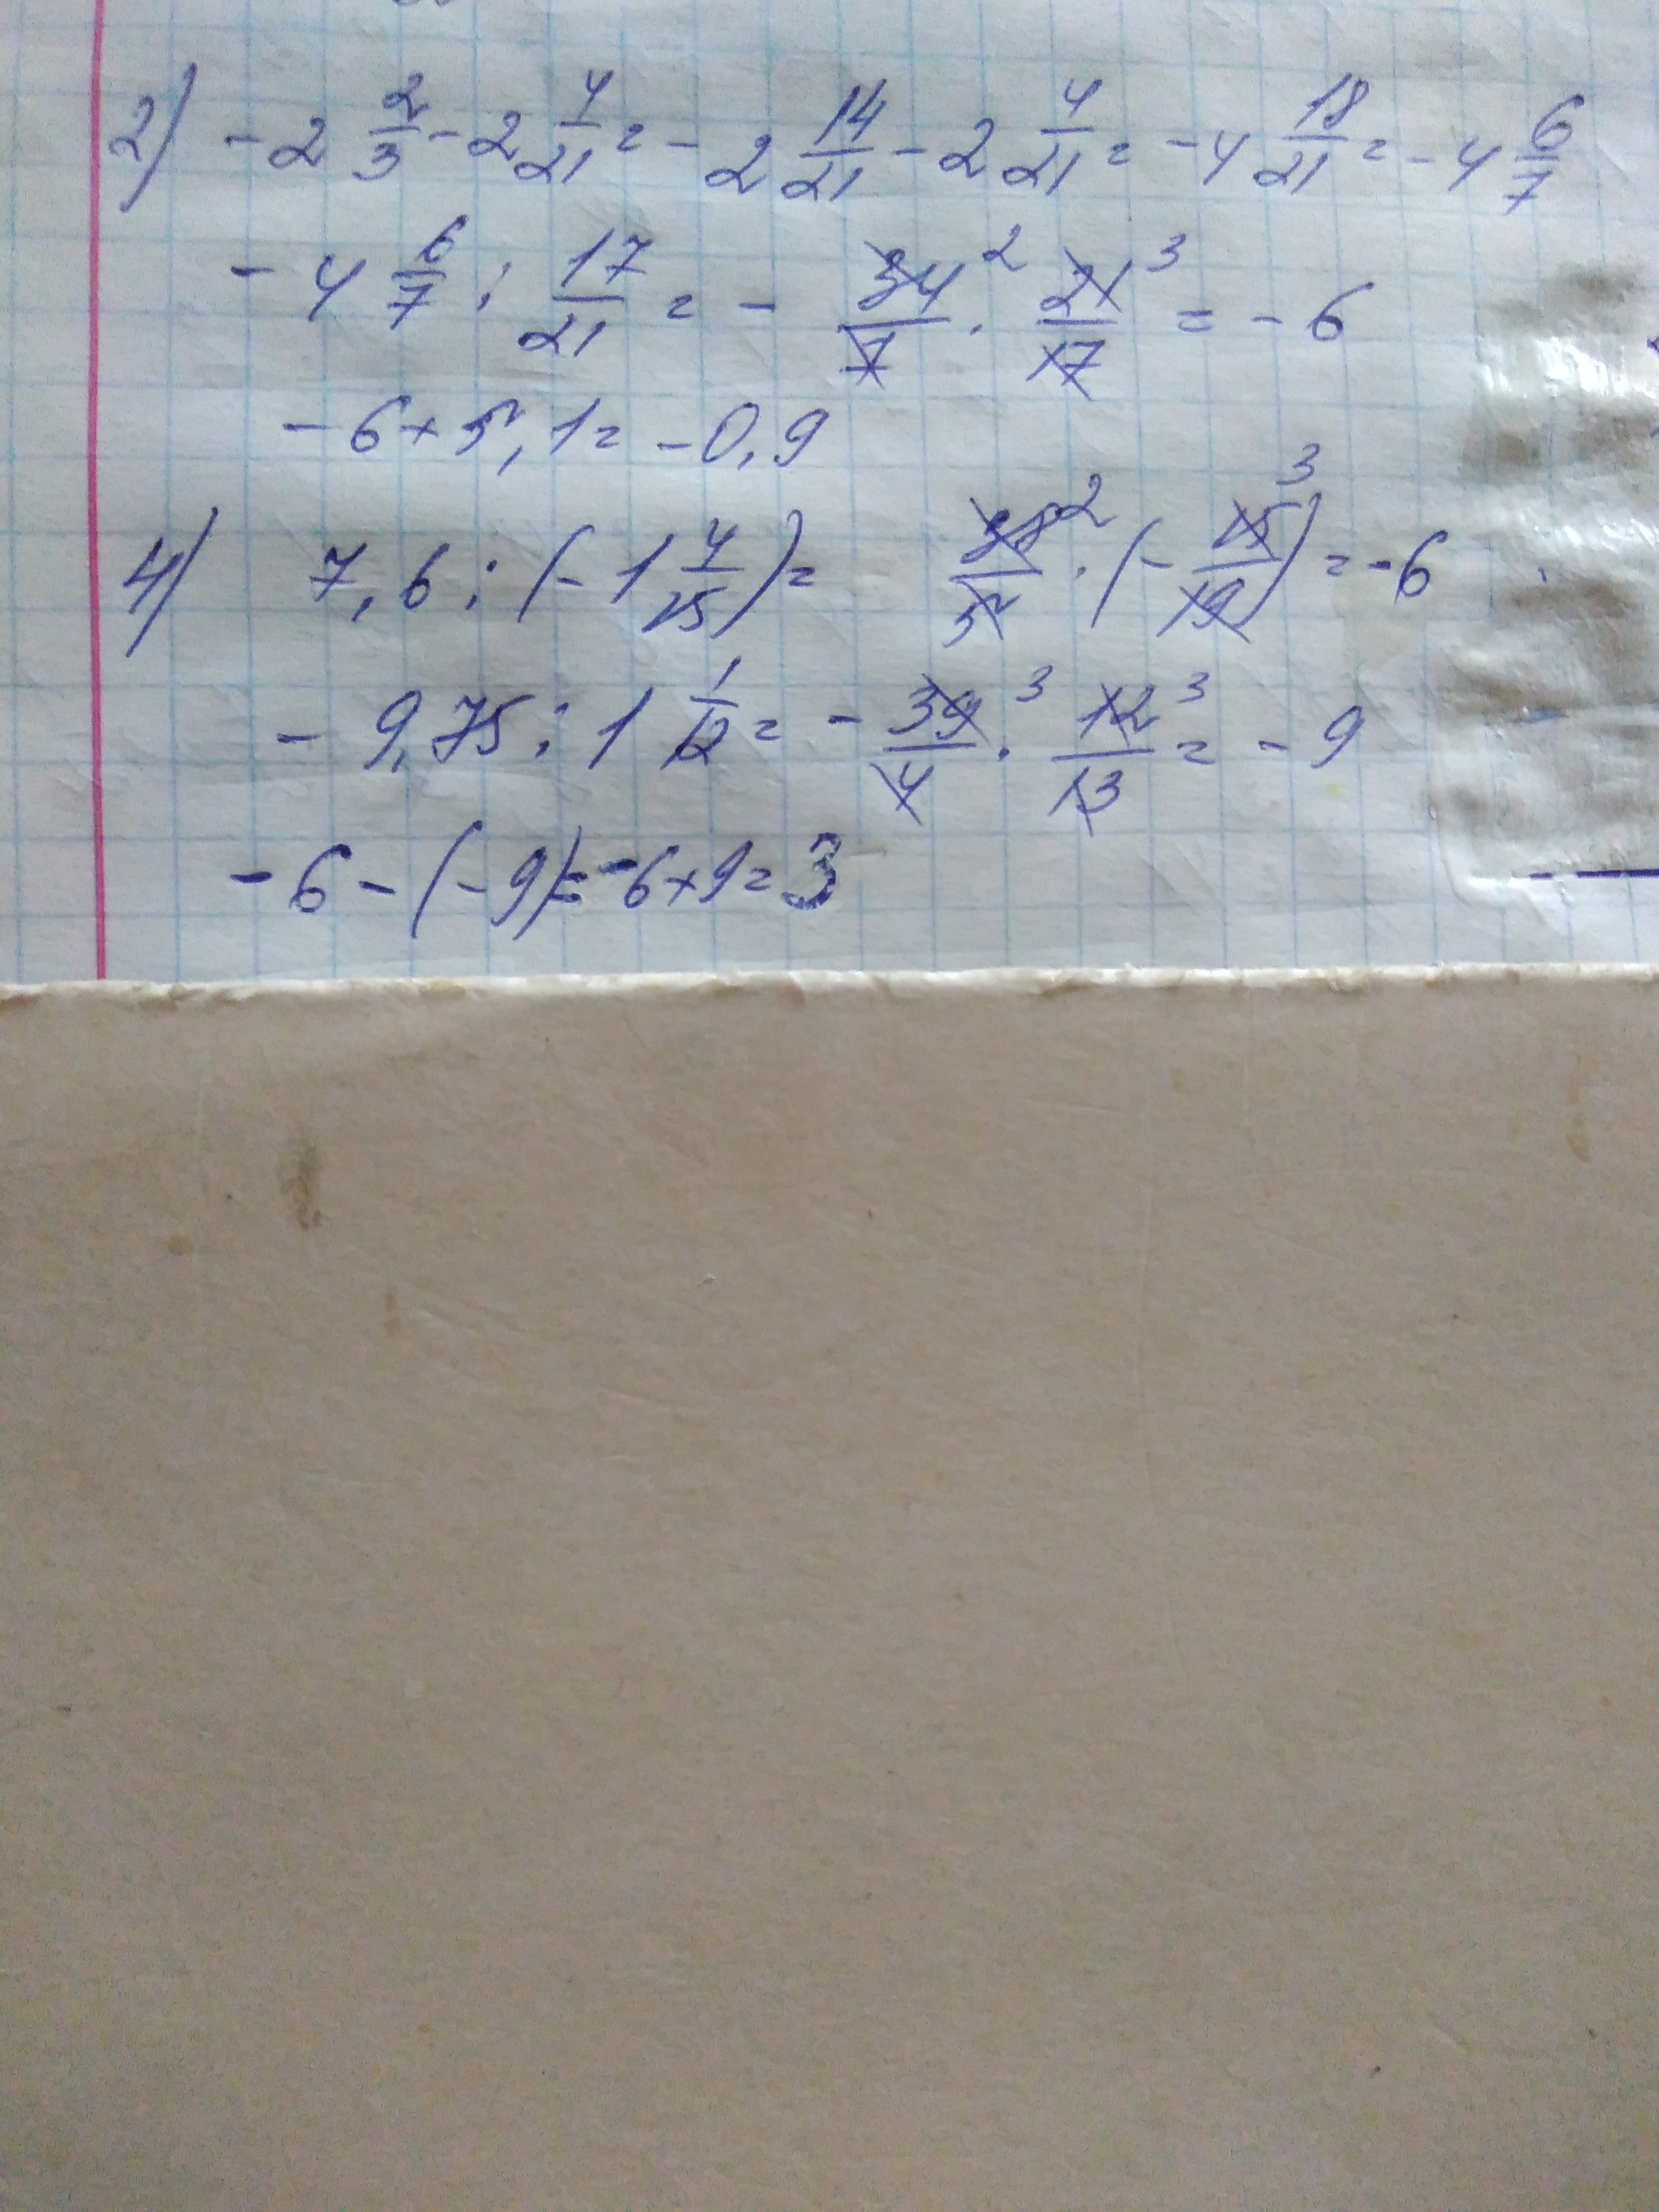 2) -2 2/3 - 2 4/21 = -2 14/21 - 2 4/21 = -4 18/21 = -4 6/7
-4 6/7 : 17/21 = - 34/7 2 · 21/17 3 = -6
-6+5,1= -0,9
4) 7,6 : (-1 4/15) = 38/5 2 · (- 15/19 3) = -6
-9,75 : 1 1/12 = - 39/4 3 · 12/13 3 = -9
-6-(-9)= -6+9=3